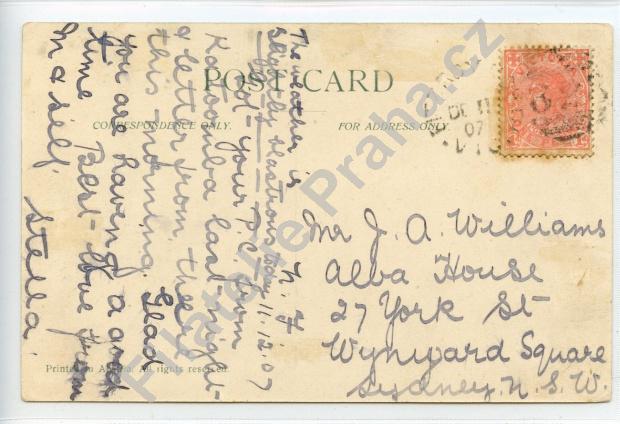 POST CARD
CORRESPONDENCE ONLY.
FOR ADDRESS ONLY.
The weather is
slightly disastrous today
11.12.07
Got your P.C. from
Katoomba last night
a letter from the
this morning. Glad
you are having a good
time Best love from
In a self,
Stella.
Mr J. A. Williams
Alba House
27 York St
Wynyard Square
Sydney. N. S. W.
DE 11
07
VIC
Printed in All rights reserved.
Filatelie Praha.cz